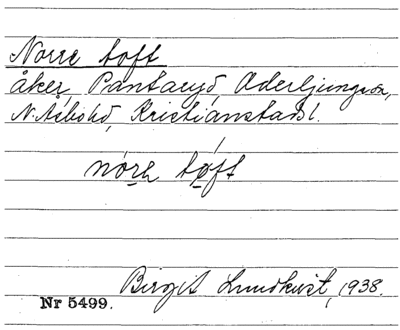 Norre toft
åker, Pantaryd, Oderljunga sn,
N. Åsbo hd, Kristianstads l.
nórə tǿft
Birgit Lundkvist, 1938.
Nr 5499.